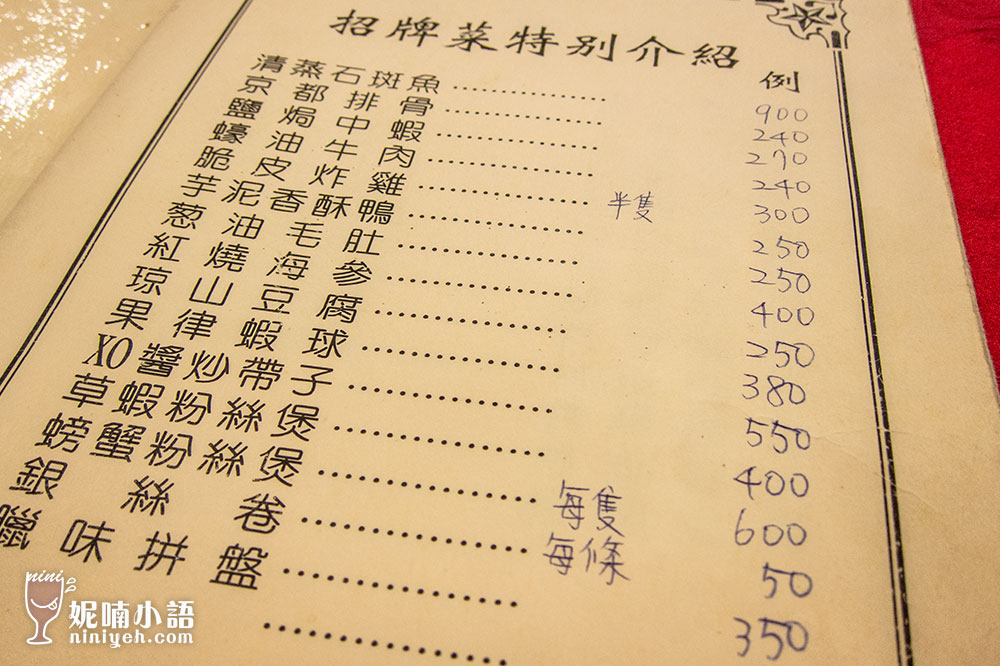 招牌菜特別介紹
例
清蒸石斑魚 ………… 900
京都排骨 ………… 240
鹽焗中蝦 ………… 270
蠔油牛肉 ………… 240
脆皮炸雞 ………… 半隻 300
芋泥香酥鴨 ………… 250
葱油毛肚 ………… 250
紅燒海參 ………… 400
琼山豆腐 ………… 250
果律蝦球 ………… 380
XO醬炒帶子 ………… 550
草蝦粉絲煲 ………… 400
螃蟹粉絲煲 ………… 每隻 600
銀絲卷 ………… 每條 50
臘味拼盤 ………… 350
nini
妮喃小語
niniyeh.com